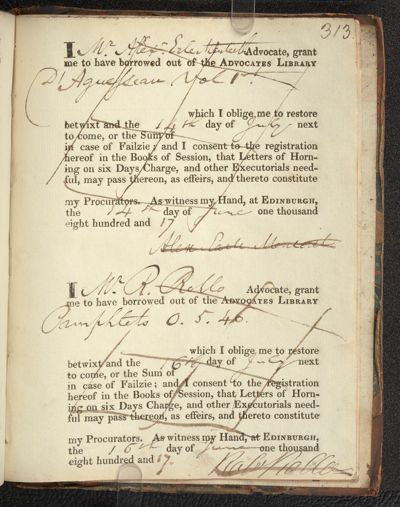 313.
I Mr. Alexr. Earle Monteith Advocate, grant
me to have borrowed out of the ADVOCATES LIBRARY
D'Aguesseau Vol 1st
which I oblige me to restore
betwixt and the 14th day of July next
to come, or the Sum of
in case of Failzie; and I consent to the registration
hereof in the Books of Session, that Letters of Horn-
ing on six Days Charge, and other Executorials need-
ful, may pass thereon, as effeirs, and thereto constitute
my Procurators. As witness my Hand, at EDINBURGH,
the 14th day of June one thousand
eight hundred and 17
Alex Earle Monteith
I Mr. R. Rollo Advocate, grant
me to have borrowed out of the ADVOCATES LIBRARY
Pamphlets O. 5. 46.
which I oblige me to restore
betwixt and the 16th day of July next
to come, or the Sum of
in case of Failzie; and I consent to the registration
hereof in the Books of Session, that Letters of Horn-
ing on six Days Charge, and other Executorials need-
ful may pass thereon, as effeirs, and thereto constitute
my Procurators. As witness my Hand, at EDINBURGH,
the 16th day of June one thousand
eight hundred and 17.
Rollo